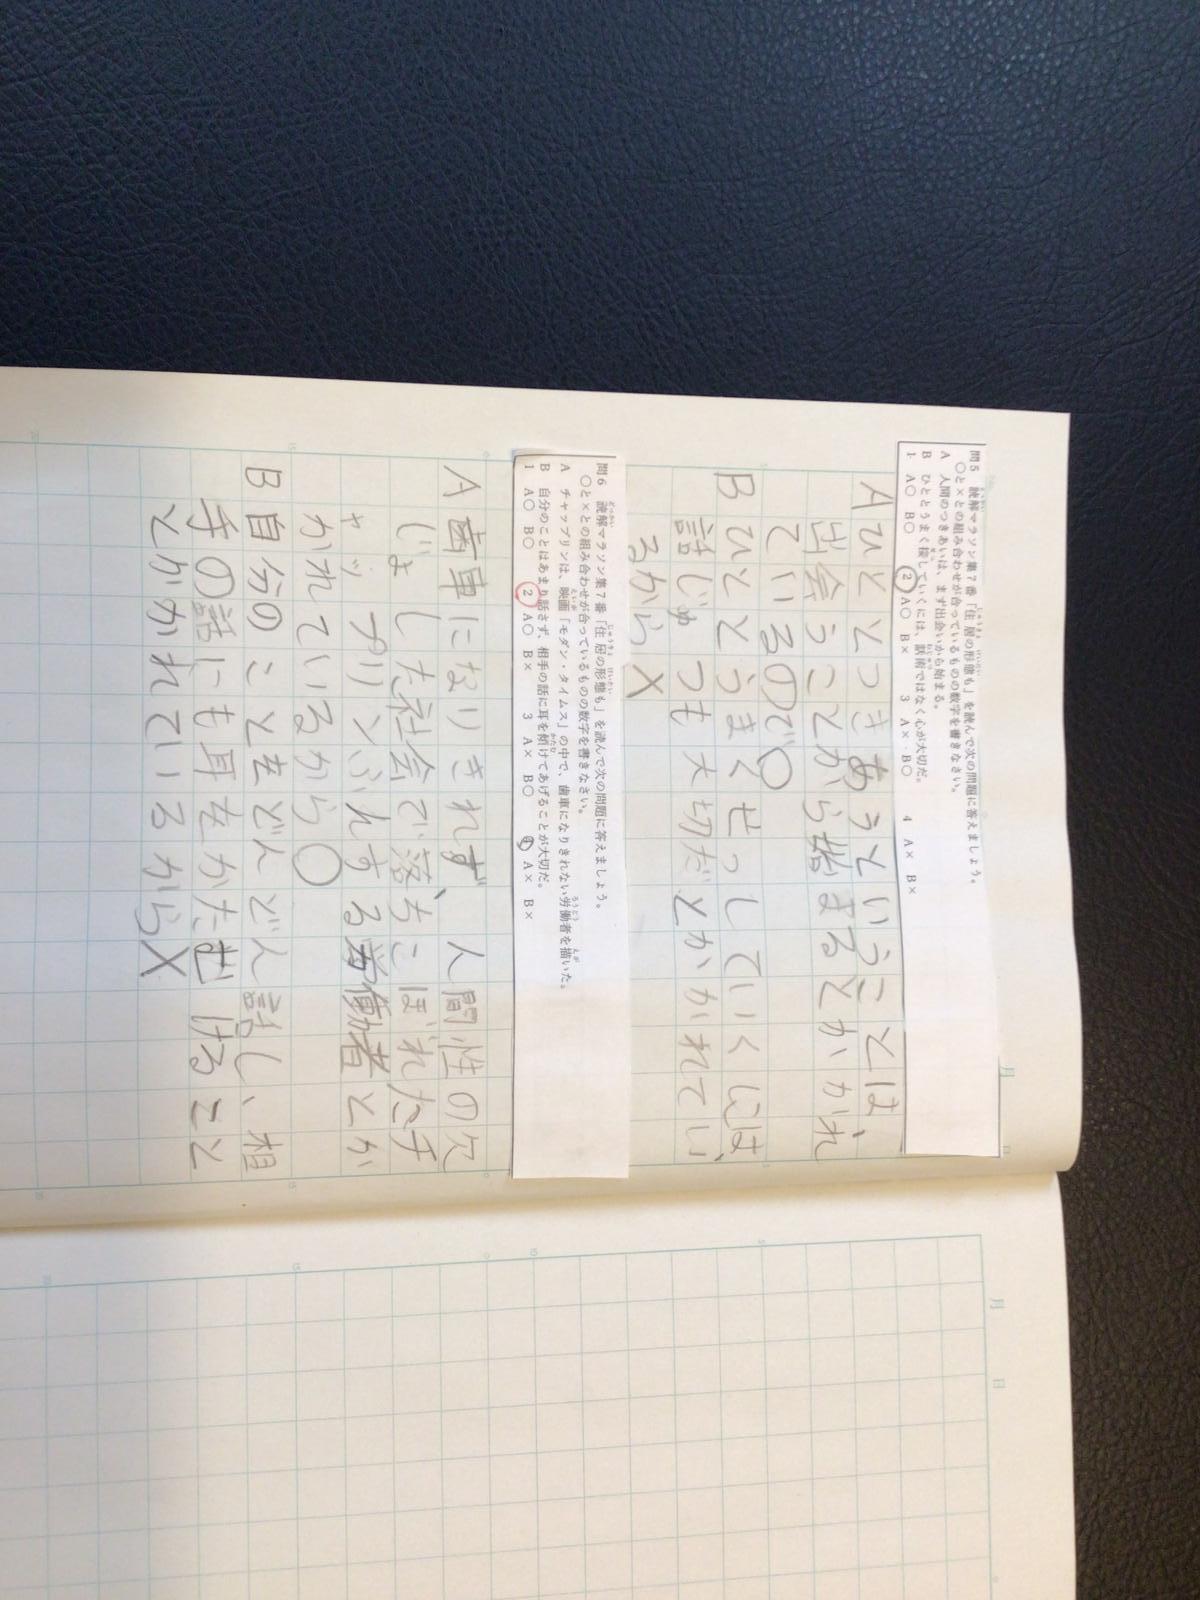 問5 読解マラソン集7番「住居の形態も」を読んで次の問題に答えましょう。
○と×との組み合わせが合っているものの数字を書きなさい。
A 人間のつきあいは、まず出会いから始まる。
B ひととうまく接していくには、話術ではなく心が大切だ。
1 A○ B○ 2 A○ B× 3 A× B○ 4 A× B×
Aひととつきあうということは、
出会うことから始まるとかかれ
ているので○
Bひととうまくせっしていくには、
話じゅつも大切だとかかれてい
るから×
問6 読解マラソン集7番「住居の形態も」を読んで次の問題に答えましょう。
○と×との組み合わせが合っているものの数字を書きなさい。
A チャップリンは、映画「モダン・タイムス」の中で、歯車になりきれない労働者を描いた。
B 自分のことはあまり話さず、相手の話に耳を傾けてあげることが大切だ。
1 A○ B○ 2 A○ B× 3 A× B○ 4 A× B×
A歯車になりきれず、人間性の欠
じょした社会で落ちこぼれたチ
ャップリンふんする労働者とか
かれているから○
B自分のことをどんどん話し、相
手の話にも耳をかたむけること
とかかれているから×
月 日